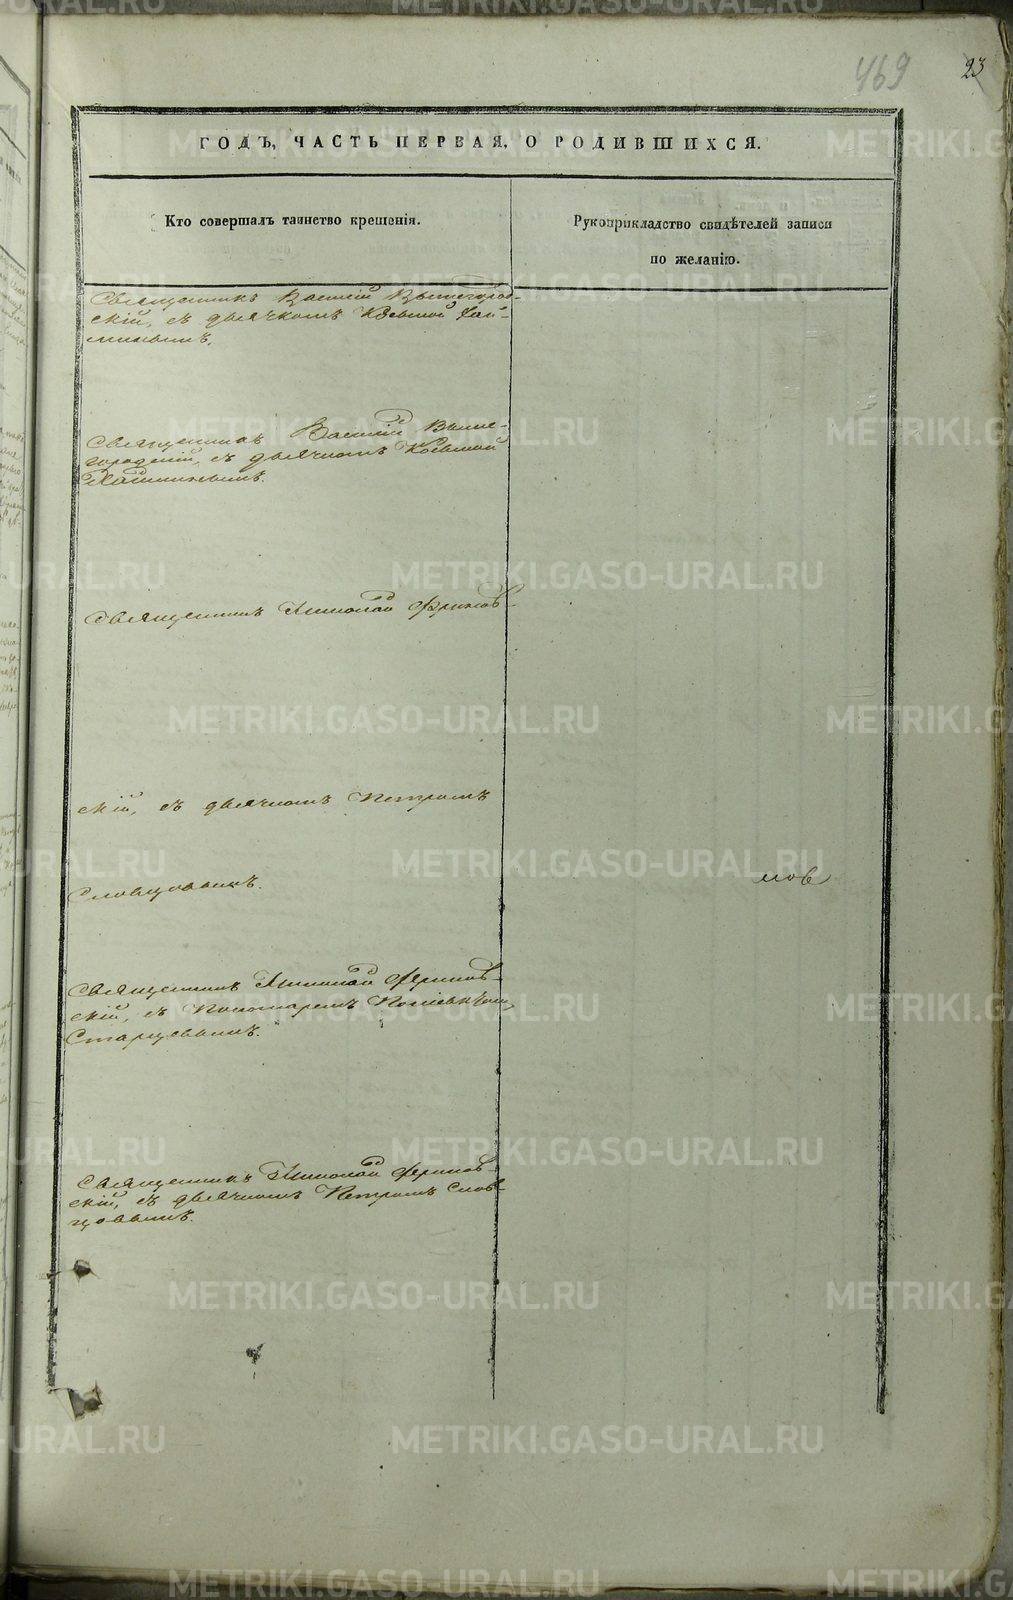 469
23
ГОДЪ, ЧАСТЬ ПЕРВАЯ, О РОДИВШИХСЯ.
Кто совершалъ таинство крещенія.
Рукоприкладство свидѣтелей записи
по желанію.
Священникъ Василій Вышегород-
скій, съ дьячкомъ Козьмой Хай-
миновымъ.
Священникъ Василій Выше-
городскій, съ дьячкомъ Козьмой
Священникъ Николай
скій, съ дьячкомъ Петромъ
Словцовымъ.
мов
Священникъ Николай
скій, съ Пономаремъ
Старцевымъ.
Священникъ Николай
скій, съ дьячкомъ Петромъ Слов-
цовымъ.
METRIKI.GASO-URAL.RU